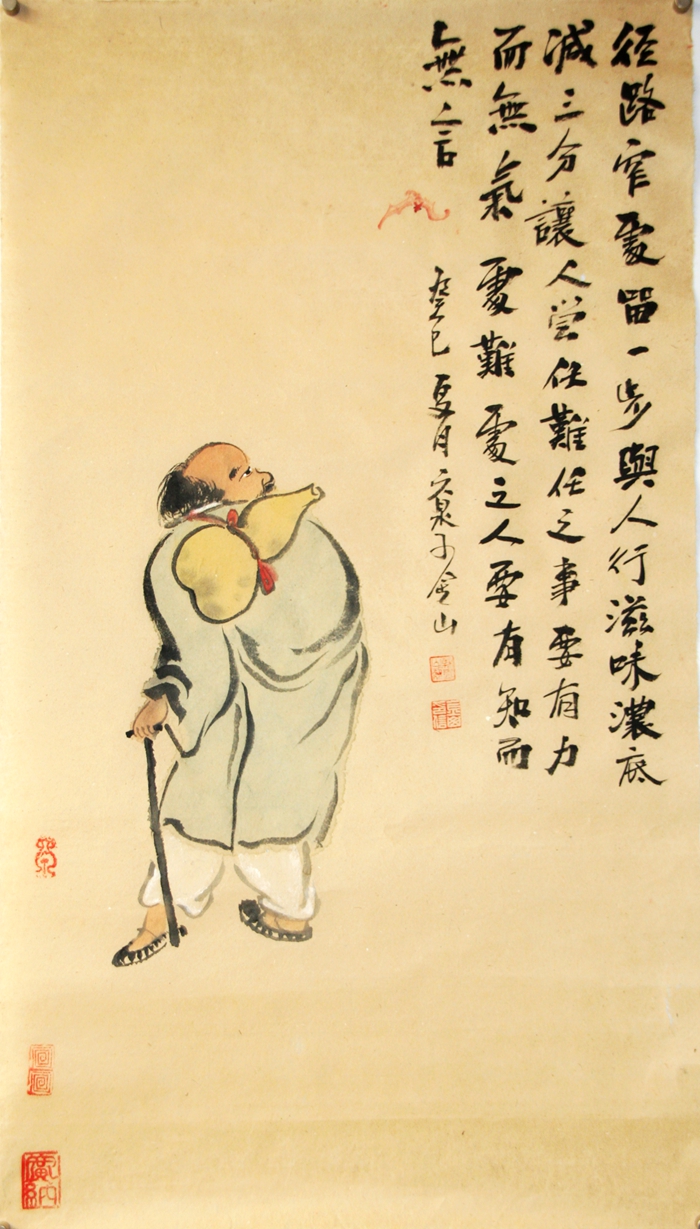 径路窄處留一步與人行滋味濃底
減三分讓人嘗任難任之事要有力
而無氣處難處之人要有知而
無言
癸巳夏月泉子山
廣納